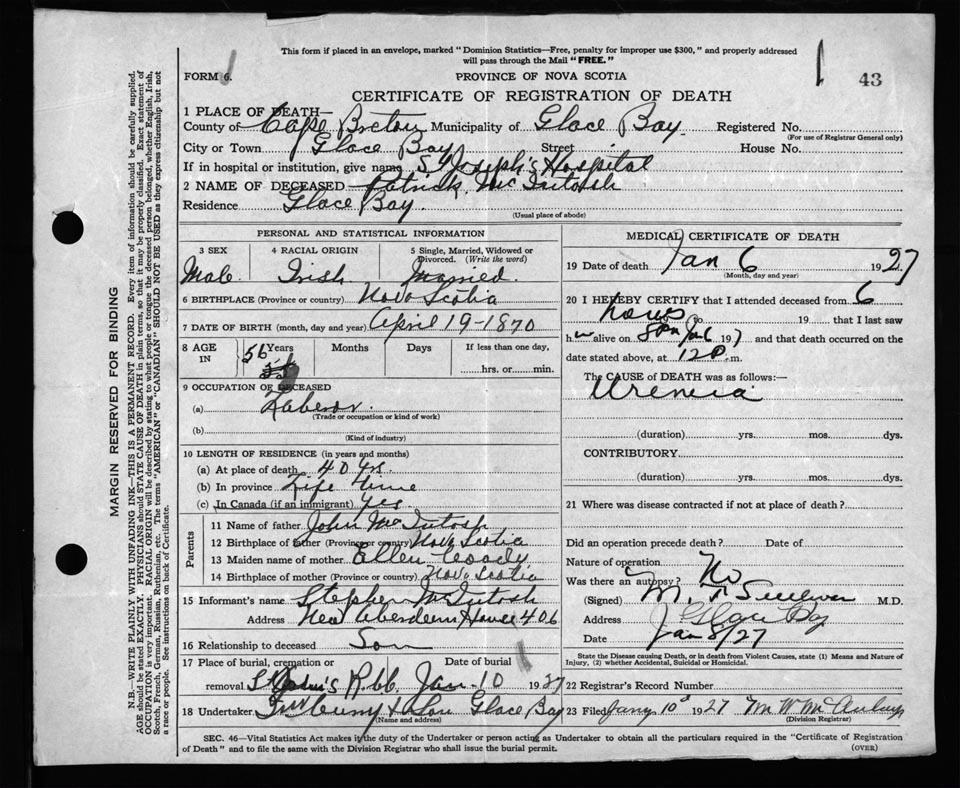 This form if placed in an envelope, marked "Dominion Statistics—Free, penalty for improper use $300," and properly addressed
will pass through the Mail "FREE."
FORM 6.
PROVINCE OF NOVA SCOTIA
43
CERTIFICATE OF REGISTRATION OF DEATH
1 PLACE OF DEATH—
County of Cape Breton Municipality of Glace Bay Registered No.
(For use of Registrar General only)
City or Town Glace Bay Street House No.
If in hospital or institution, give name St Joseph's Hospital
2 NAME OF DECEASED Patrick McIntosh
Residence Glace Bay.
(Usual place of abode)
PERSONAL AND STATISTICAL INFORMATION
3 SEX 4 RACIAL ORIGIN 5 Single, Married, Widowed or Divorced. (Write the word)
Male Irish Married.
6 BIRTHPLACE (Province or country) Nova Scotia
7 DATE OF BIRTH (month, day and year) April 19-1870
8 AGE IN 56 Years Months Days If less than one day,
hrs. or min.
9 OCCUPATION OF DECEASED
(a) Laborer.
(Trade or occupation or kind of work)
(b)
(Kind of industry)
10 LENGTH OF RESIDENCE (in years and months)
(a) At place of death 40 yrs.
(b) In province Life time
(c) In Canada (if an immigrant) yes
Parents
11 Name of father John McIntosh
12 Birthplace of father (Province or country) Nova Scotia
13 Maiden name of mother Ellen Coady
14 Birthplace of mother (Province or country) Nova Scotia
15 Informant's name Stephen McIntosh
Address New Aberdeen House 406
16 Relationship to deceased Son
17 Place of burial, cremation or removal Date of burial
St John's R.C. Jan-10 1927
18 Undertaker Glace Bay
(Name and address)
MEDICAL CERTIFICATE OF DEATH
19 Date of death Jan 6 1927
(Month, day and year)
20 I HEREBY CERTIFY that I attended deceased from 6
hours to 19 that I last saw
h m alive on Jan 6 1927 and that death occurred on the
date stated above, at 12 P. m.
The CAUSE of DEATH was as follows:—
Uremia
(duration) yrs. mos. dys.
CONTRIBUTORY
(duration) yrs. mos. dys.
21 Where was disease contracted if not at place of death?
Did an operation precede death? Date of
Nature of operation
Was there an autopsy? No
(Signed) M. T. Sullivan M.D.
Address Glace Bay
Date Jan 8/27
State the Disease causing Death, or in death from Violent Causes, state (1) Means and Nature of
Injury, (2) whether Accidental, Suicidal or Homicidal.
22 Registrar's Record Number
23 Filed Jany 10th 1927 M W
(Division Registrar)
SEC. 46—Vital Statistics Act makes it the duty of the Undertaker or person acting as Undertaker to obtain all the particulars required in the "Certificate of Registration
of Death" and to file the same with the Division Registrar who shall issue the burial permit.
(OVER)
MARGIN RESERVED FOR BINDING
N.B.—WRITE PLAINLY WITH UNFADING INK—THIS IS A PERMANENT RECORD. Every item of information should be carefully supplied.
AGE should be stated EXACTLY. PHYSICIANS should STATE CAUSE OF DEATH in plain terms, so that it may be properly classified. Exact statement of
OCCUPATION is very important. RACIAL ORIGIN will be described by stating to what people or tongue the deceased person belonged, whether English, Irish,
Scotch, French, German, Russian, Ruthenian, etc. The terms "AMERICAN" or "CANADIAN" SHOULD NOT BE USED as they express citizenship but not
a race or people. See instructions on back of Certificate.